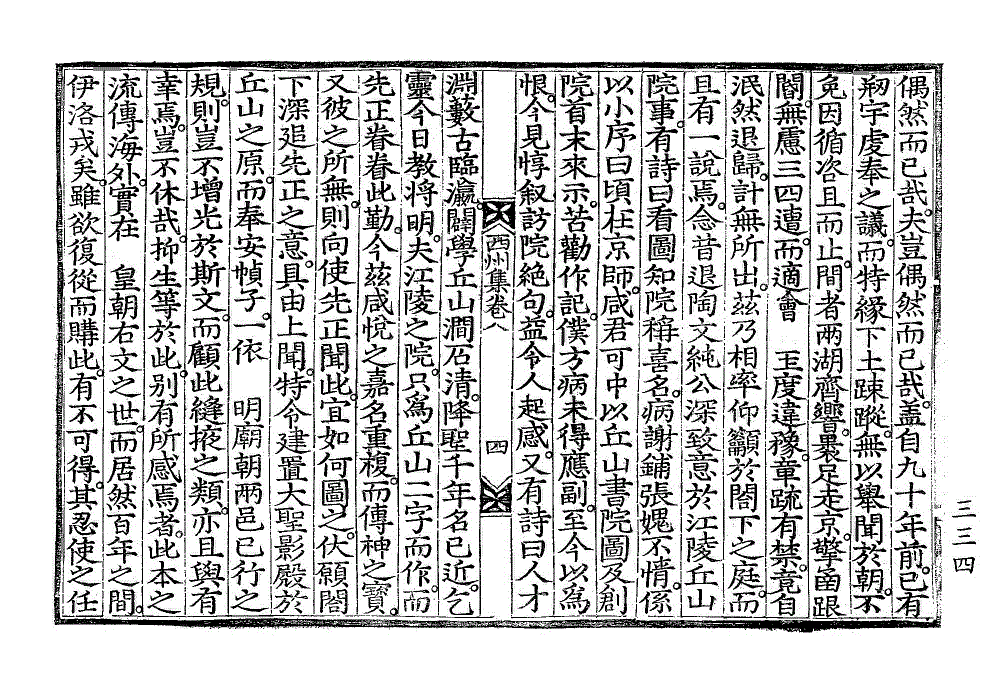 偶然而已哉。夫豈偶然而已哉。蓋自九十年前。已有
刱宇虔奉之議。而特緣下土踈蹤。無以舉聞於朝。不
免因循咨且而止。間者兩湖齊響。裹足走京。擎函跟
閽。無慮三四遭。而適會 王度違豫。章疏有禁。竟自
泯然退歸。計無所出。茲乃相率仰籲於閤下之庭。而
且有一說焉。念昔退陶文純公深致意於江陵丘山
院事。有詩曰看圖知院稱喜名。病謝鋪張媿不情。係
以小序曰頃在京師。咸君可中以丘山書院圖及創
院首末來示。苦勸作記。僕方病未得應副。至今以為
恨。今見惇叙訪院絶句。益令人起感。又有詩曰人才
西州集卷八
四
淵藪古臨瀛。闢學丘山澗石清。降聖千年名已近。乞
靈今日教將明。夫江陵之院。只為丘山二字而作。而
先正眷眷此勤。今茲咸悅之嘉名重複。而傳神之寶。
又彼之所無。則向使先正聞此。宜如何圖之。伏願閤
下深追先正之意。具由上聞。特令建置大聖影殿於
丘山之原。而奉安幀子。一依 明廟朝兩邑已行之
規。則豈不增光於斯文。而顧此縫掖之類。亦且與有
幸焉。豈不休哉。抑生等於此。別有所感焉者。此本之
流傳海外。實在 皇朝右文之世。而居然百年之間。
伊洛戎矣。雖欲復從而購此。有不可得。其忍使之任
三三四